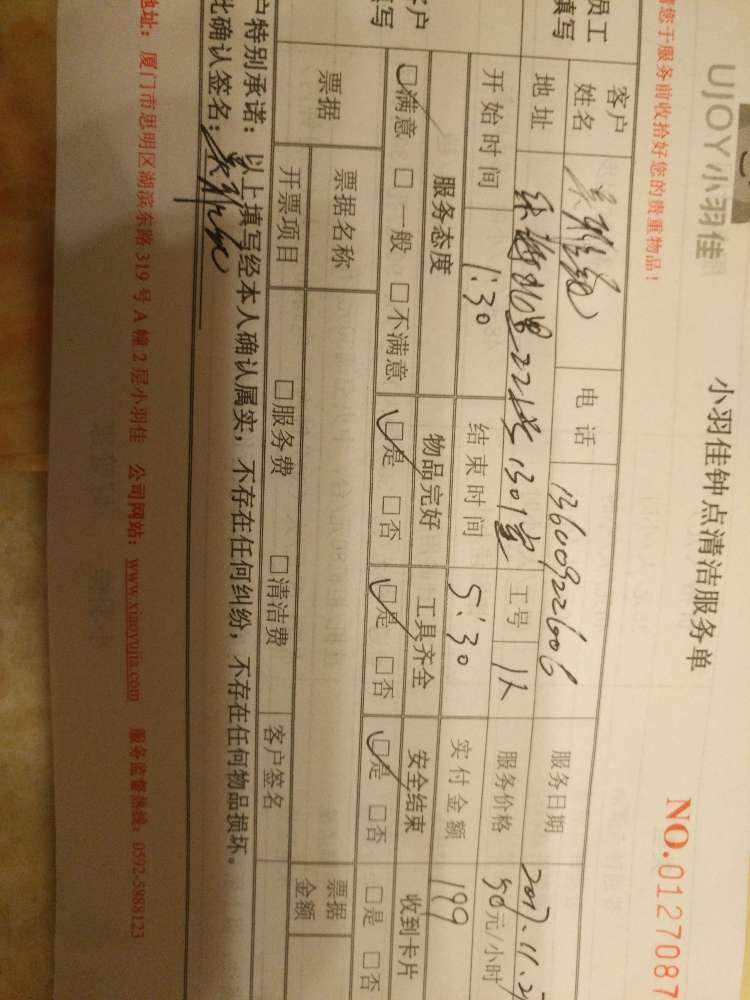 UJOY小羽佳
小羽佳钟点清洁服务单
请您于服务前收拾好您的贵重物品！
NO.0127087
员工
填写
客户
姓名
电话 13600922606
服务日期 2017.11.2
地址 22号1301室
工号 1人
服务价格 50元/小时
开始时间 1:30
结束时间 5:30
实付金额 199
客户
填写
服务态度 物品完好 工具齐全 安全结束 收到卡片
□满意 □一般 □不满意 □是 □否 □是 □否 □是 □否 □是 □否
票据
票据名称
票据
金额
开票项目 □服务费 □清洁费 客户签名
户特别承诺：以上填写经本人确认属实，不存在任何纠纷，不存在任何物品损坏。
此确认签名：
地址：厦门市思明区湖滨东路319号A幢2层小羽佳 公司网站：www.xiaoyujia.com 服务监督热线：0592-5888123